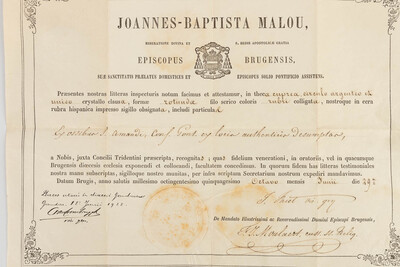 JOANNES-BAPTISTA MALOU,
MISERATIONE DIVINA ET S. SEDIS APOSTOLICÆ GRATIA
EPISCOPUS BRUGENSIS,
SUÆ SANCTITATIS PRÆLATUS DOMESTICUS ET EPISCOPUS SOLIO PONTIFICIO ASSISTENS,
Præsentes nostras litteras inspecturis notum facimus et attestamur, in theca cuprea circulo argenteo et
unico crystallo clausa, formæ rotunda filo serico coloris rubri colligata, nostroque in cera
rubra hispanica impresso sigillo obsignata, includi particulas
S. Amandi, Conf. Pont. ex locis authenticis desumptas,
a Nobis, juxta Concilii Tridentini præscripta, recognitas; quas fidelium venerationi, in oratoriis, vel in quacumque
Brugensis diœcesis ecclesia exponendi et collocandi, facultatem concedimus. In quorum fidem has litteras testimoniales
nostro manu subscriptas, sigilloque nostro munitas, per infra scriptum Secretarium nostrum expediri mandavimus.
Datum Brugis, anno salutis millesimo octingentesimo quinquagesimo Octavo mensis Junii die
De Mandato Illustrissimi ac Reverendissimi Domini Episcopi Brugensis,